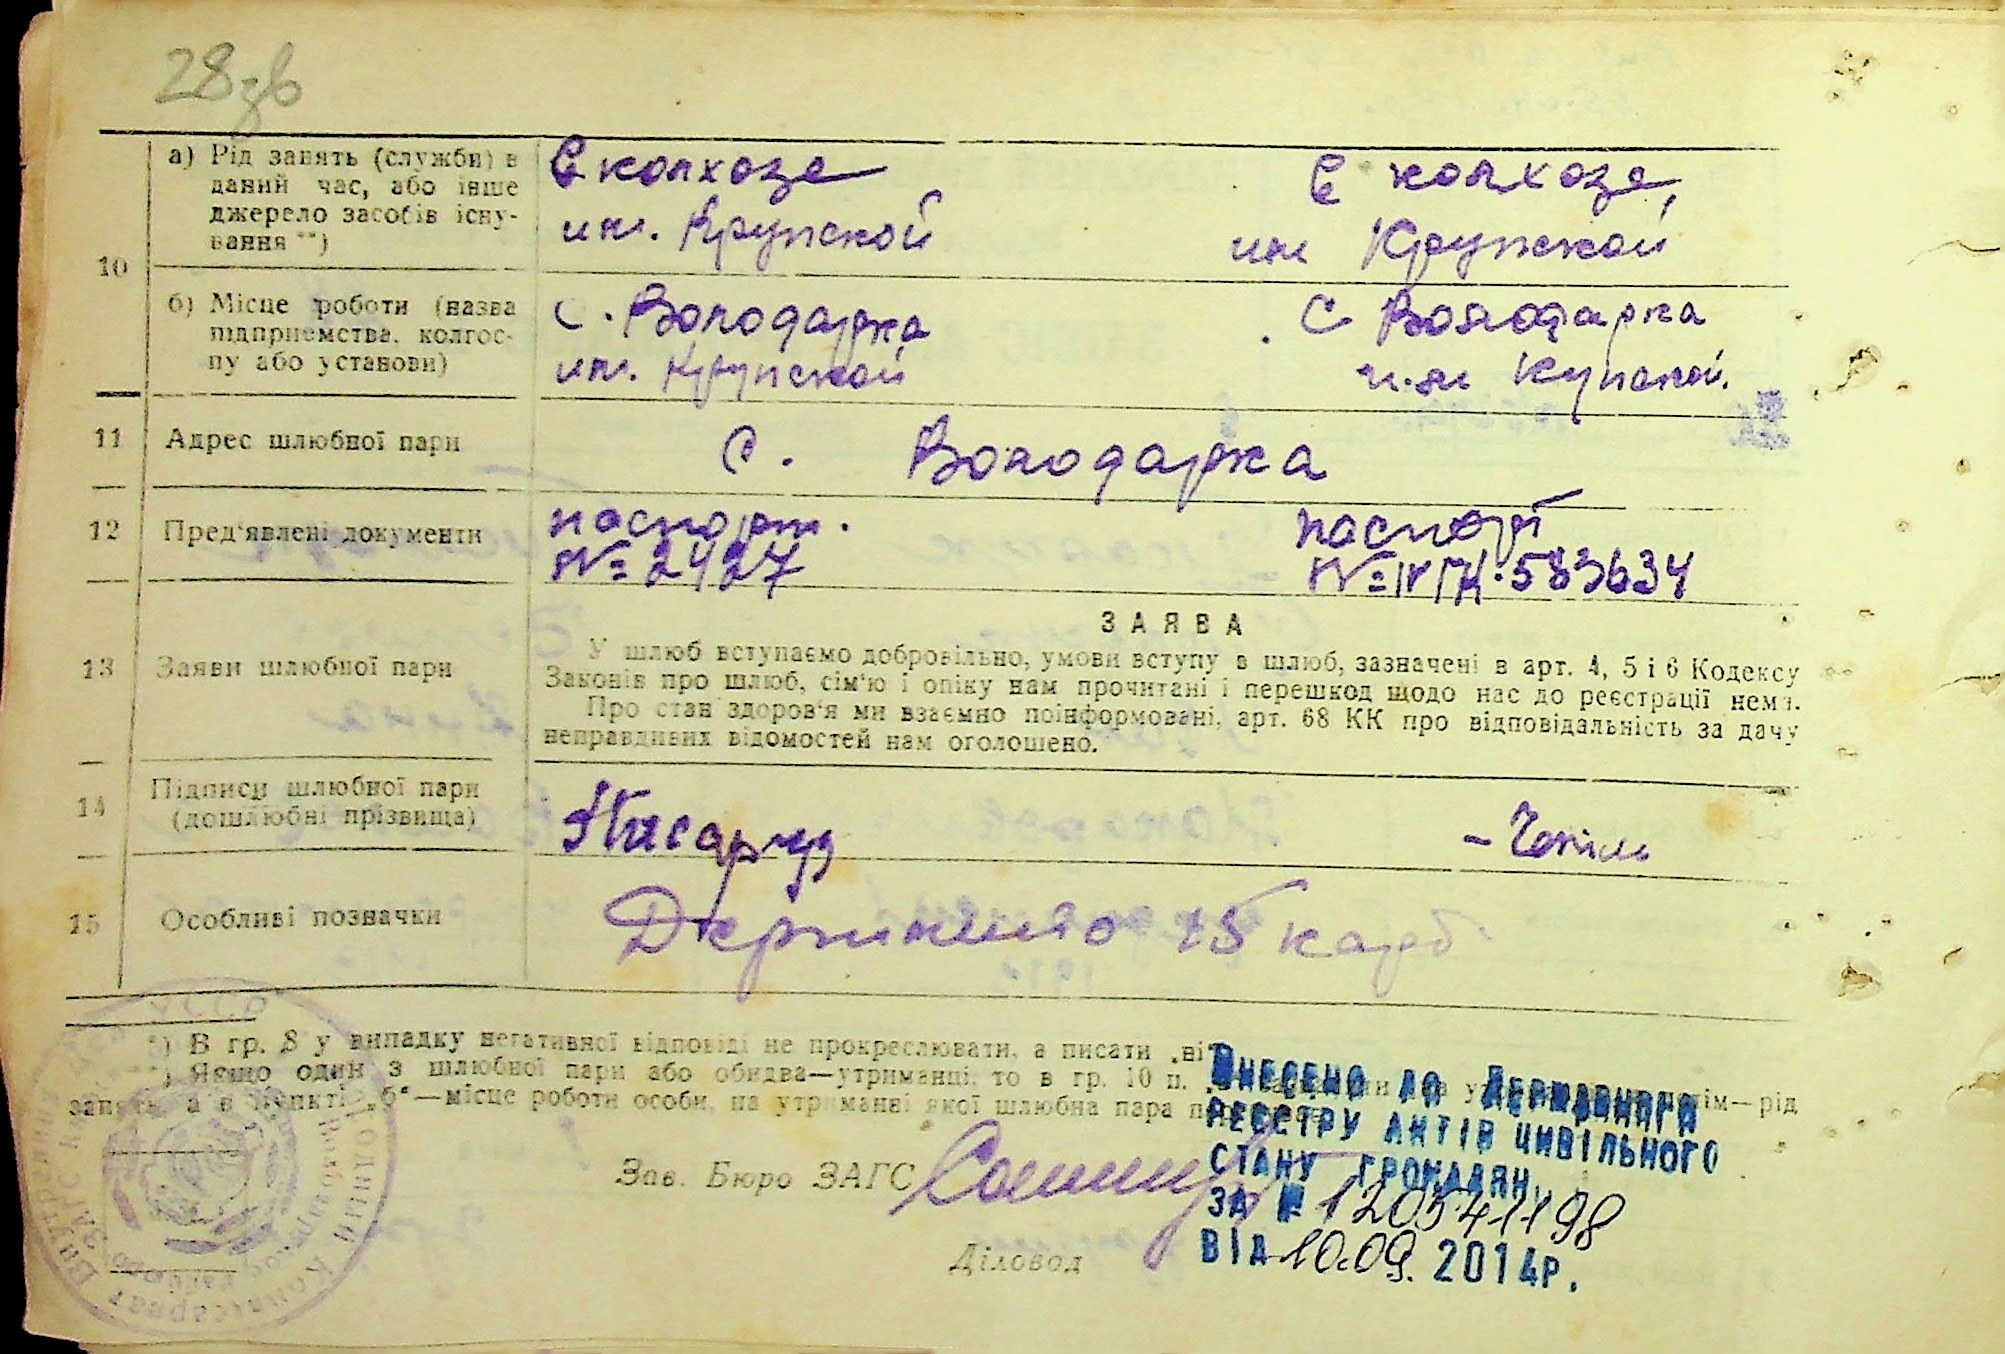 28зв
10
а) Рід занять (служби) в
даний час, або інше
джерело засобів існу-
вання **)
В колхозе
им. Крупской
в колхозе,
им Крупской
б) Місце роботи (назва
підприємства, колгос-
пу або установи)
с. Володарка
им. Крупской
с Володарка
им Купской.
11 Адрес шлюбної пари
с. Володарка
12 Пред'явлені документи
паспорт.
№ 2427
паспорт
№ 583634
13 Заяви шлюбної пари
ЗАЯВА
У шлюб вступаємо добровільно, умови вступу в шлюб, зазначені в арт. 4, 5 і 6 Кодексу
Законів про шлюб, сім'ю і опіку нам прочитані і перешкод щодо нас до реєстрації нема.
Про стан здоров'я ми взаємно поінформовані, арт. 68 КК про відповідальність за дачу
неправдивих відомостей нам оголошено.
14 Підписи шлюбної пари
(дошлюбні прізвища)
15 Особливі позначки
15 карб
*) В гр. 8 у випадку негативної відповіді не прокреслювати, а писати „ні“
**) Якщо один з шлюбної пари або обидва—утриманці, то в гр. 10 п.
рід
занять, а в пункті „б“—місце роботи особи, на утриманні якої шлюбна пара
Зав. Бюро ЗАГС
Діловод
ВНЕСЕНО ДО ДЕРЖАВНОГО
РЕЄСТРУ АКТІВ ЦИВІЛЬНОГО
СТАНУ ГРОМАДЯН
ЗА № 120541198
ВІД 10.09. 2014р.